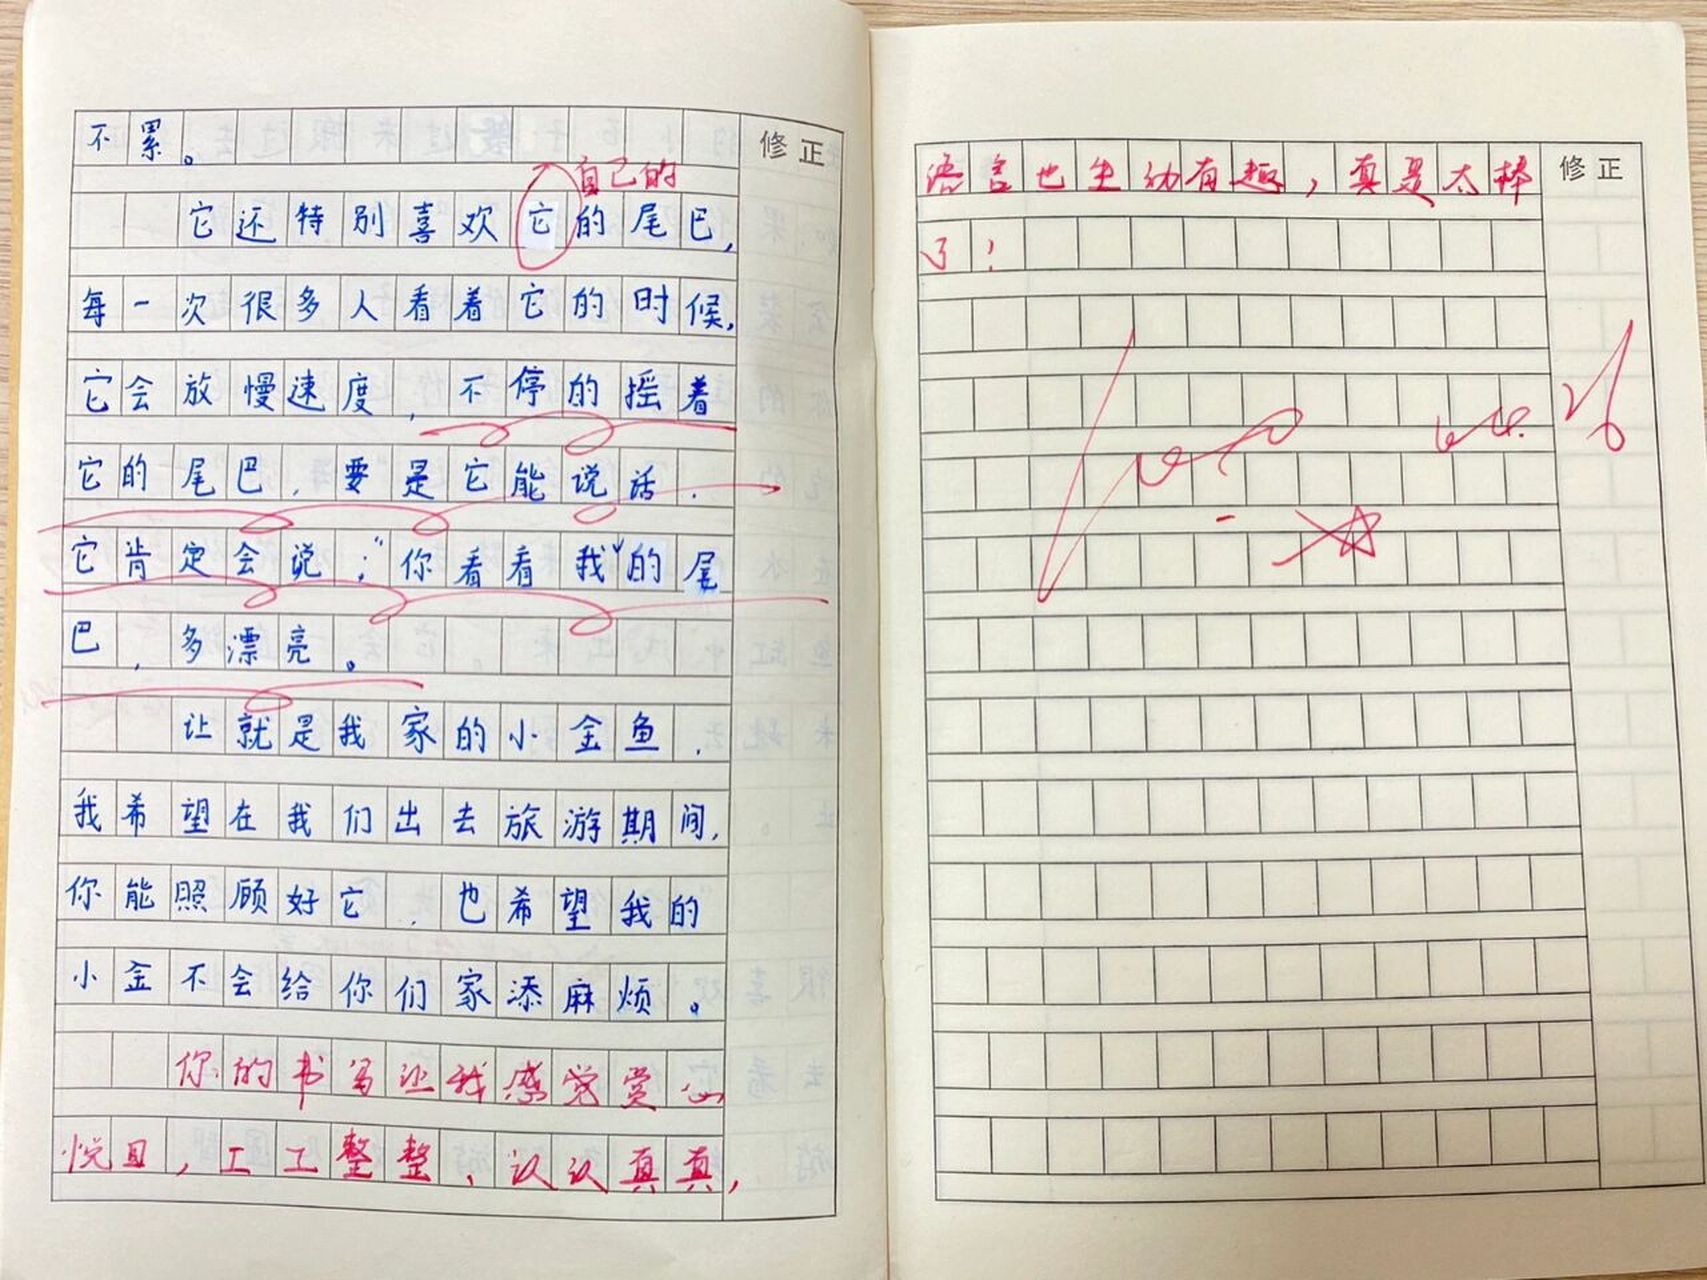 不累。
修正
自己的
它还特别喜欢它的尾巴,
每一次很多人看着它的时候,
它会放慢速度,不停的摇着
它的尾巴,要是它能说话,
它肯定会说:“你看看我的尾
巴,多漂亮。
让就是我家的小金鱼,
我希望在我们出去旅游期间,
你能照顾好它,也希望我的
小金不会给你们家添麻烦。
你的书写让我感觉赏心
悦目,工工整整、认认真真,
修正
语言也生动有趣,真是太棒
了!